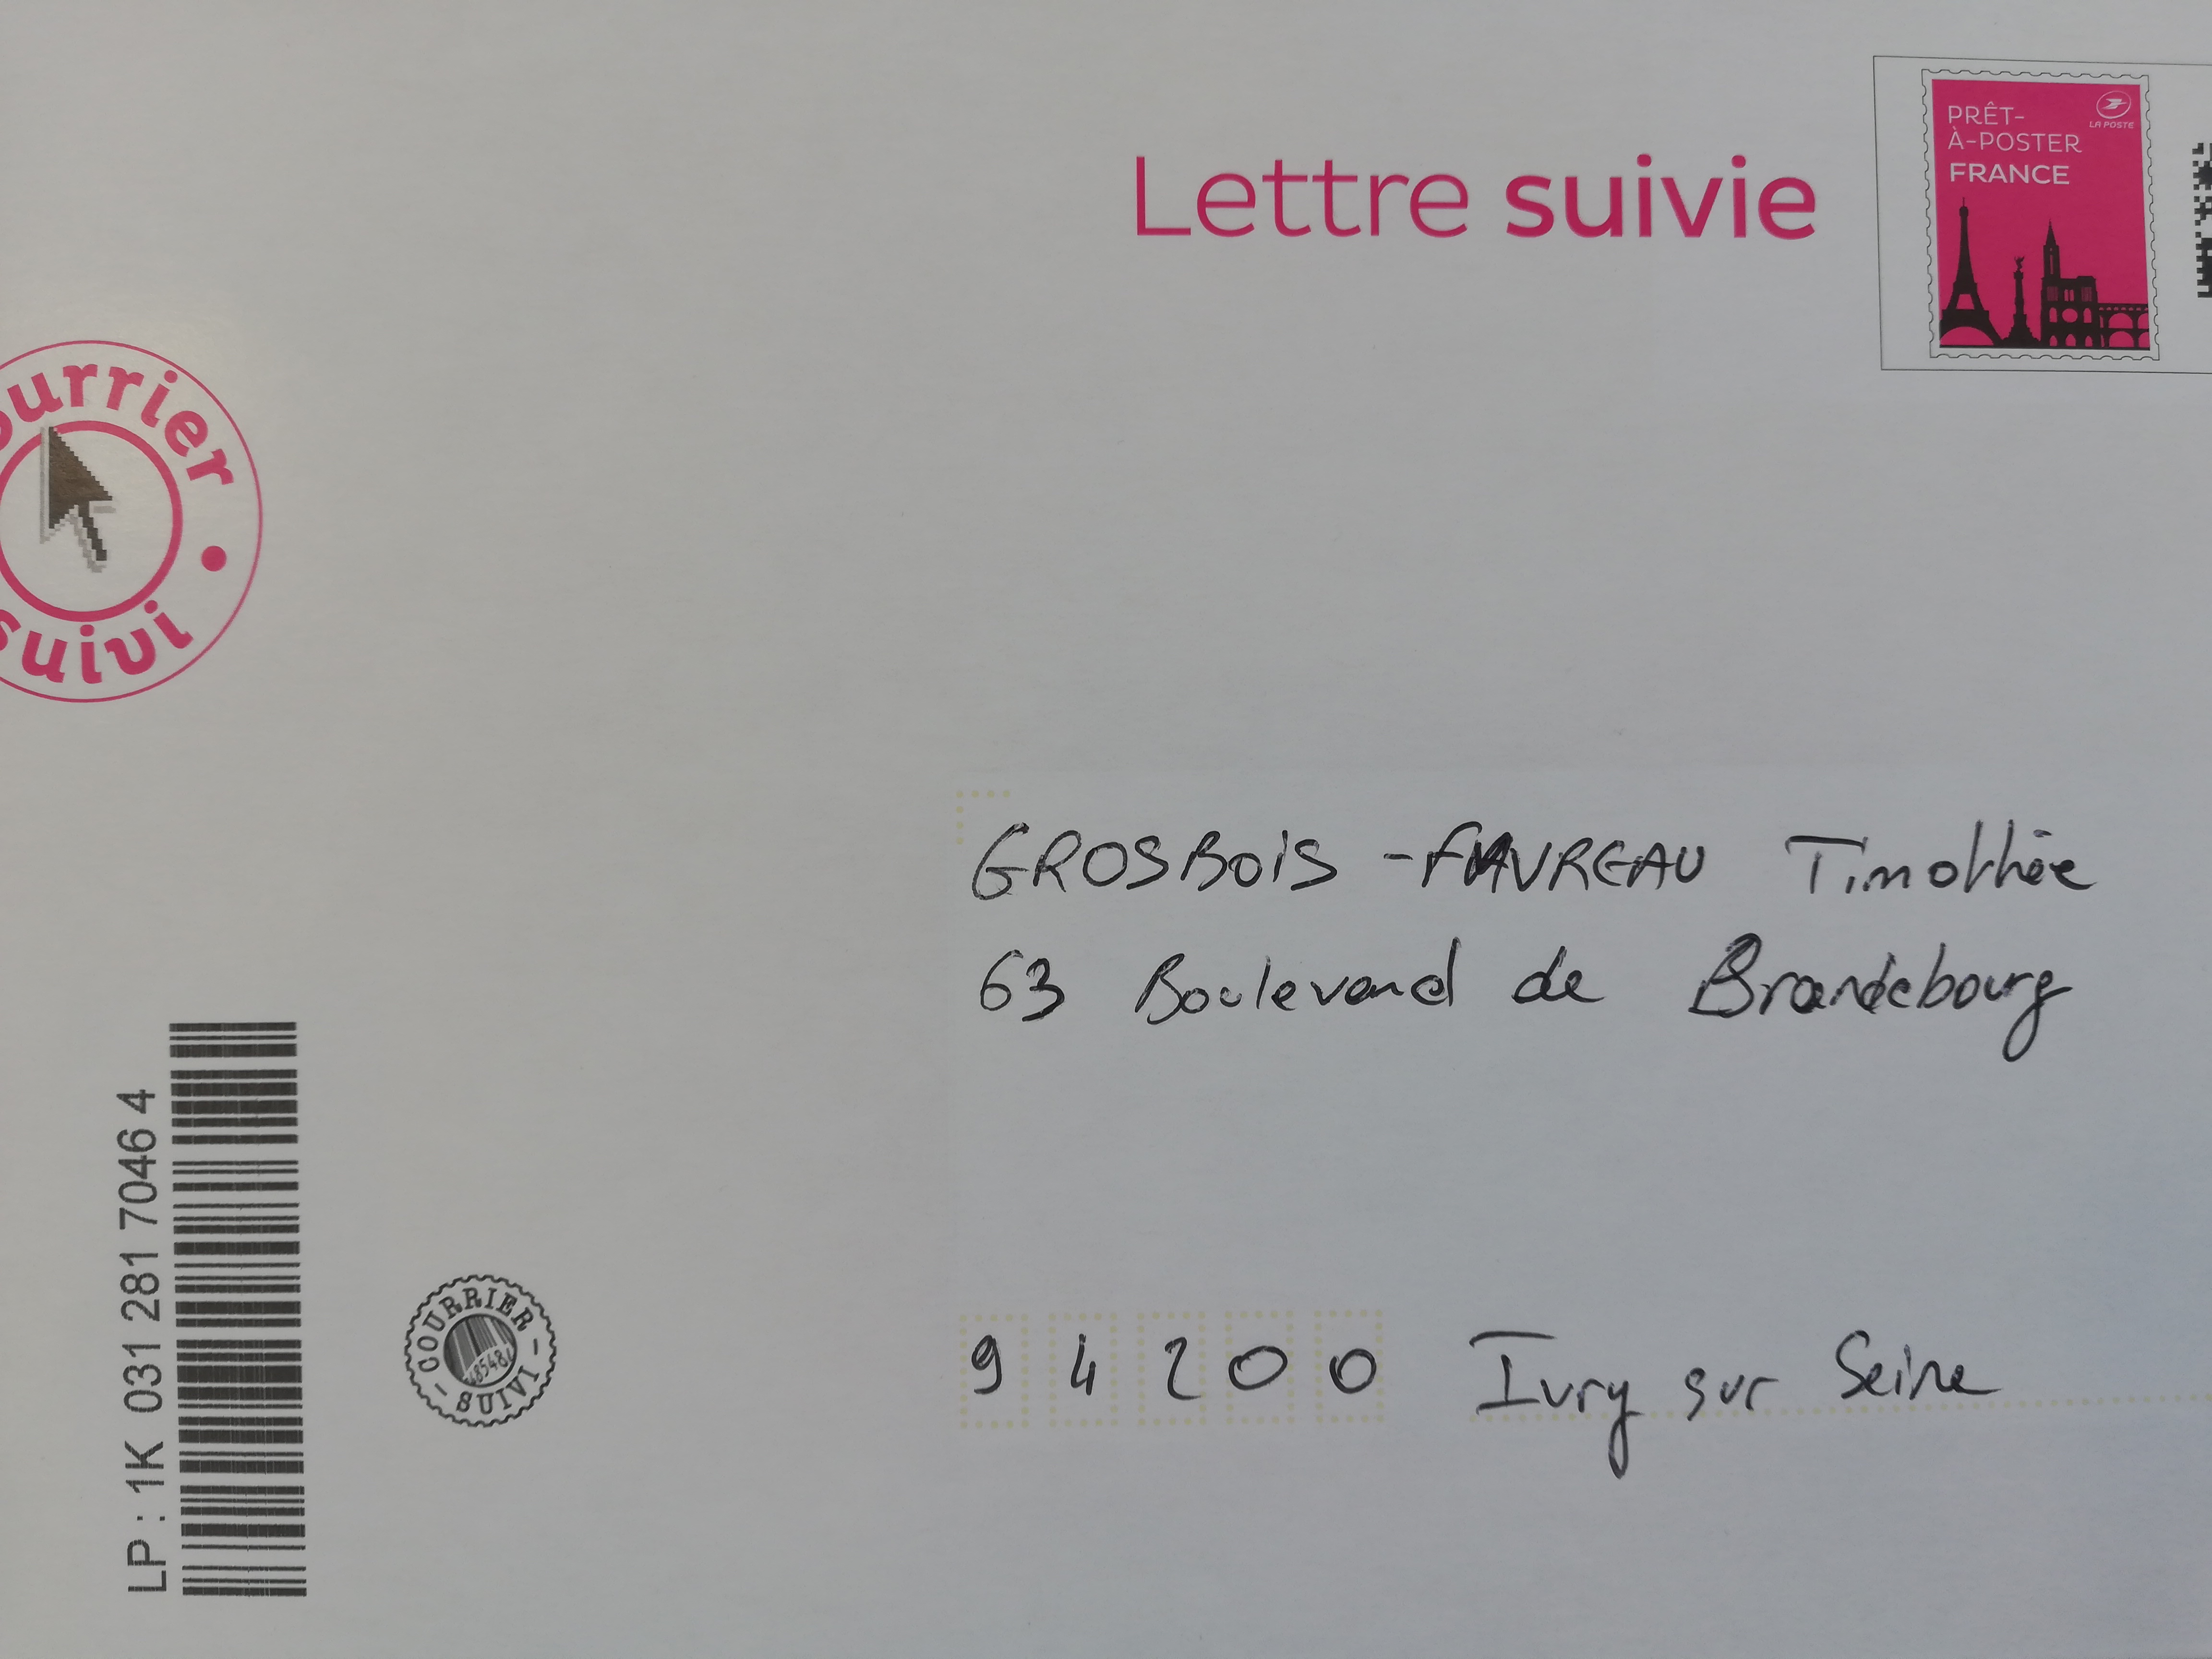 PRÊT-
À-POSTER
FRANCE
LA POSTE
Lettre suivie
ourrier
suivi
GROSBOIS-FAVREAU Timothée
63 Boulevard de Brandebourg
LP : 1K 031 281 7046 4
COURRIER
SUIVI
94200 Ivry sur Seine